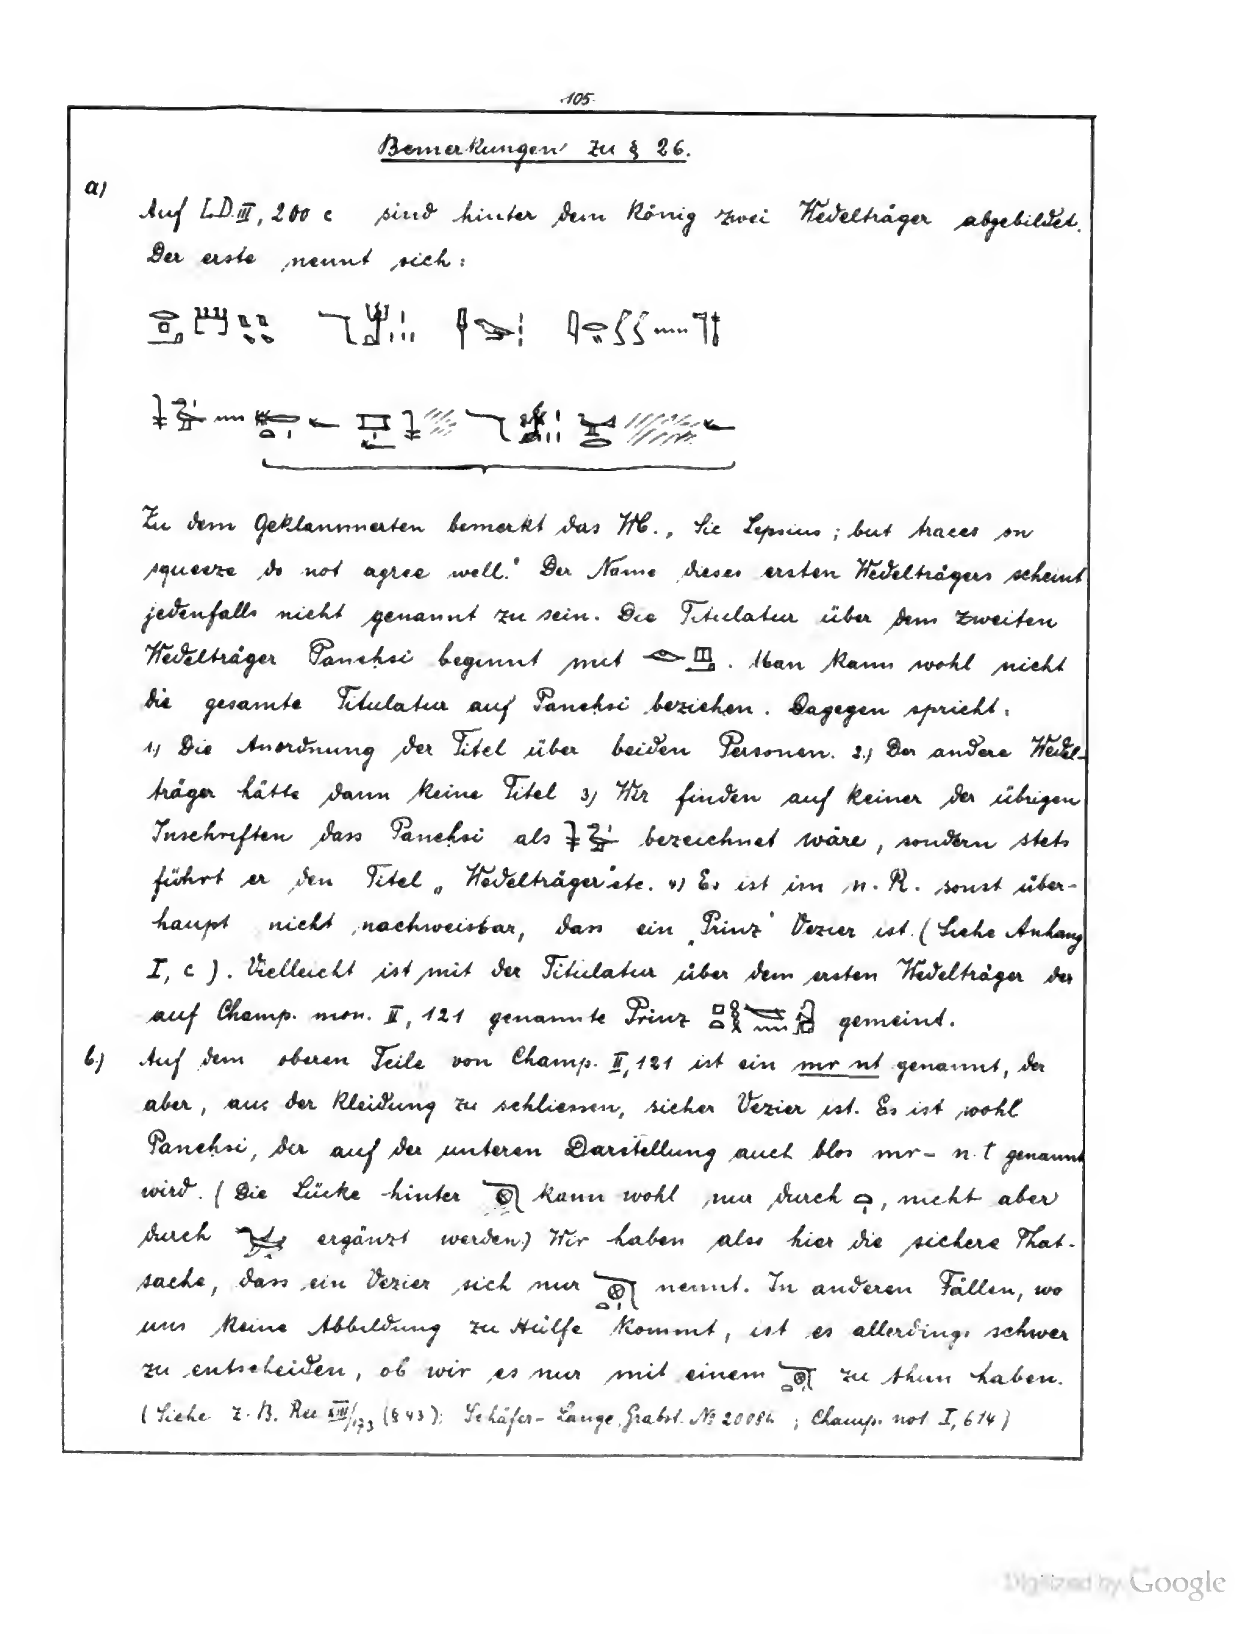 105.
Bemerkungen zu § 26.
a)
Auf L.D. III, 200 c sind hinter dem König zwei Wedelträger abgebildet.
Der erste nennt sich:
Zu dem Geklammerten bemerkt das Wb. „Sic Lepsius; but traces on
squeeze do not agree well." Der Name dieses ersten Wedelträgers scheint
jedenfalls nicht genannt zu sein. Die Titulatur über dem zweiten
Wedelträger Paneḥsi beginnt mit . Man kann wohl nicht
die gesamte Titulatur auf Paneḥsi beziehen. Dagegen spricht:
1) Die Anordnung der Titel über beiden Personen. 2.) Der andere Wedel-
träger hätte dann keine Titel 3) Wir finden auf keiner der übrigen
Inschriften dass Paneḥsi als bezeichnet wäre, sondern stets
führt er den Titel „Wedelträger" etc. 4) Es ist im n. R. sonst über-
haupt nicht nachweisbar, dass ein „Prinz" Vezier ist. (Siehe Anhang
I, c). Vielleicht ist mit der Titulatur über dem ersten Wedelträger der
auf Champ. mon. II, 121 genannte Prinz gemeint.
b.) Auf dem oberen Teile von Champ. II, 121 ist ein mr nt genannt, der
aber, aus der Kleidung zu schliessen, sicher Vezier ist. Es ist wohl
Paneḥsi, der auf der unteren Darstellung auch blos mr - n.t genannt
wird. (Die Lücke hinter kann wohl nur durch , nicht aber
durch ergänzt werden.) Wir haben also hier die sichere That-
sache, dass ein Vezier sich nur nennt. In anderen Fällen, wo
uns keine Abbildung zu Hülfe kommt, ist es allerdings schwer
zu entscheiden, ob wir es nur mit einem zu thun haben.
(Siehe z. B. Rec XIII/173 (§ 43); Schäfer-Lange, Grabst. No ; Champ. not I, 614)
Digitized by Google